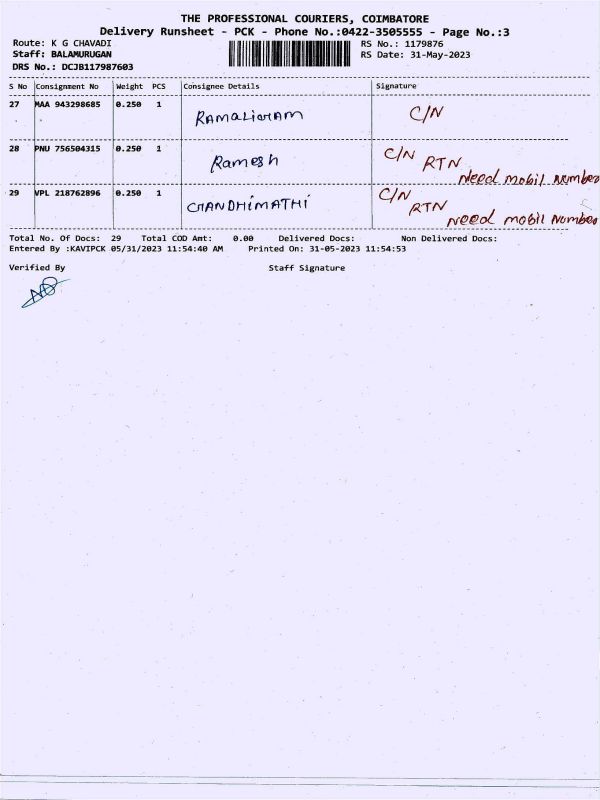 THE PROFESSIONAL COURIERS, COIMBATORE
Delivery Runsheet - PCK - Phone No.:0422-3505555 - Page No.:3
Route: K G CHAVADI RS No.: 1179876
Staff: BALAMURUGAN RS Date: 31-May-2023
DRS No.: DCJB117987603
S No Consignment No Weight PCS Consignee Details Signature
27 MAA 943298685 0.250 1 RAMALIGRAM C/N
28 PNU 756504315 0.250 1 Ramesh C/N RTN
Need mobil Number
29 VPL 218762896 0.250 1 CHANDHIMATHI C/N
RTN
Need mobil Number
Total No. Of Docs: 29 Total COD Amt: 0.00 Delivered Docs: Non Delivered Docs:
Entered By :KAVIPCK 05/31/2023 11:54:40 AM Printed On: 31-05-2023 11:54:53
Verified By Staff Signature